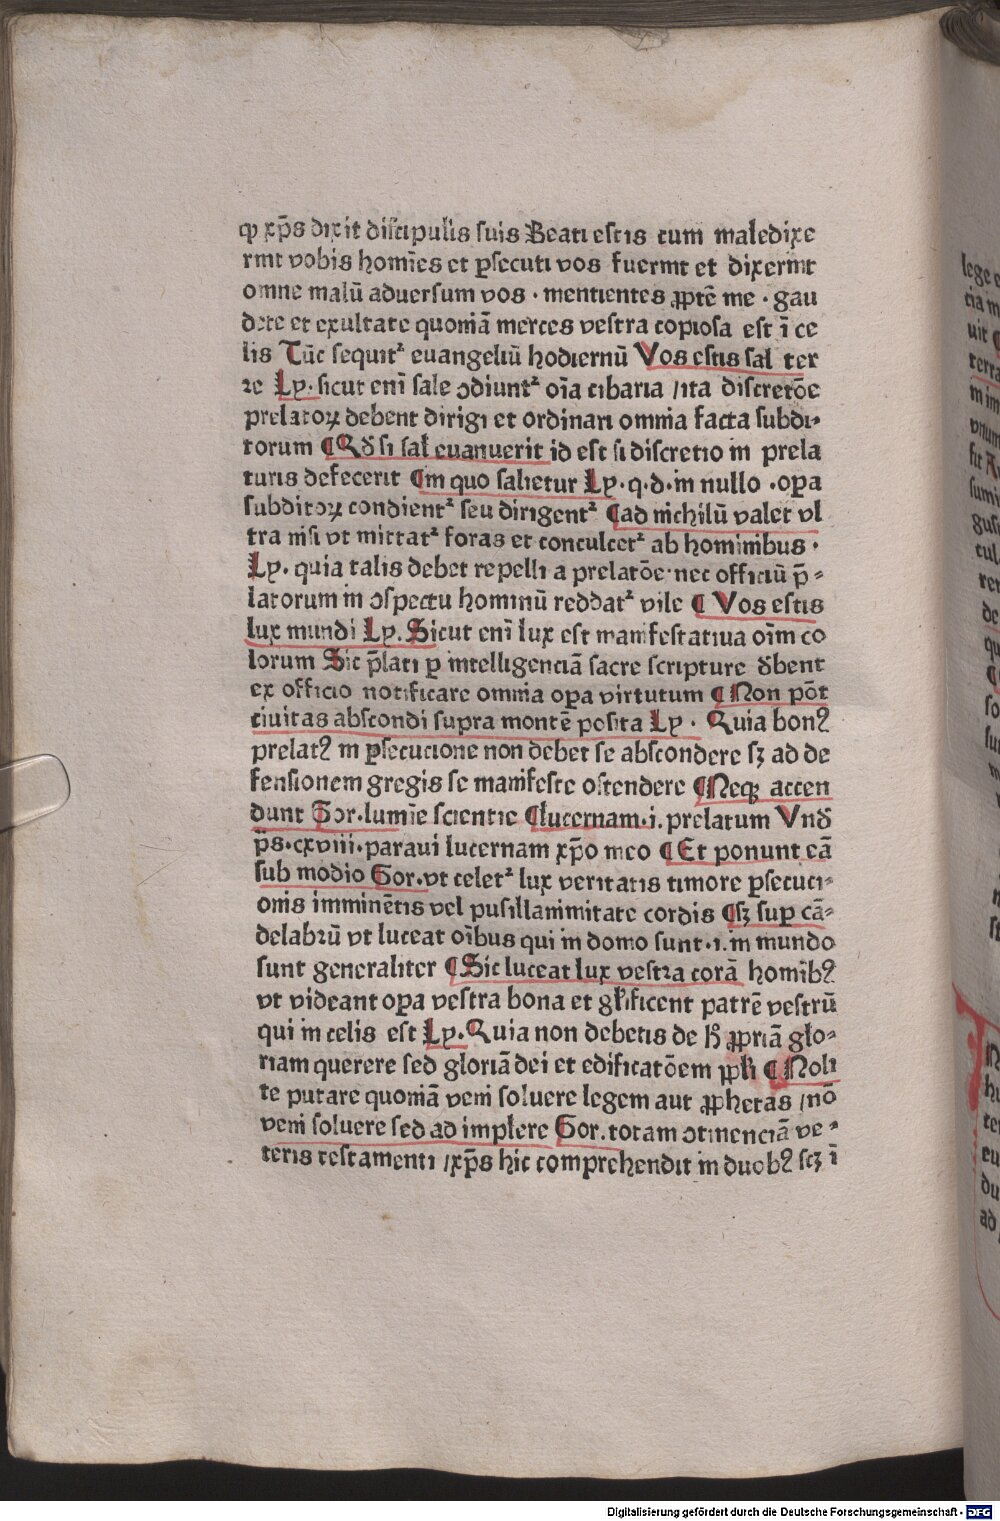 ꝙ xp̄s dixit discipulis suis Beati estis cum maledixe
rint vobis homīes et ꝑsecuti vos fuerint et dixerint
omne malū aduersum vos · mentientes ꝓptē me · gau
dete et exultate quoniā merces vestra copiosa est ī ce
lis Tūc sequit᷑ euangeliū hodiernū Vos estis sal ter
re Ly. sicut enī sale ↄdiunt᷑ oīa cibaria / ita discretōe
prelatoꝝ debent dirigi et ordinari omnia facta subdi⸗
torum ¶ Qđ si sal euanuerit id est si discretio in prela
turis defecerit ¶ in quo salietur Ly. q. d. in nullo . oꝑa
subditoꝝ condient᷑ seu dirigent᷑ ¶ ad nichilū valet vl
tra nisi vt mittat᷑ foras et conculcet᷑ ab hominibus .
Ly. quia talis debet repelli a prelatōe · nec officiū p̄⸗
latorum in ↄspectu hominū reddat᷑ vile ¶ Vos estis
lux mundi Ly. Sicut enī lux est manifestatiua oīm co
lorum Sic p̄lati ꝑ intelligenciā sacre scripture đbent
ex officio notificare omnia oꝑa virtutum ¶ Non pōt
ciuitas abscondi supra montē posita Ly . Quia bonꝰ
prelatꝰ in ꝑsecucione non debet se abscondere sꝫ ad de
fensionem gregis se manifeste ostendere ¶ Neqꝫ accen
dunt Gor. lumīe scientie ¶ lucernam . i. prelatum Vnđ
p̄s. cxviii. paraui lucernam xp̄o meo ¶ Et ponunt eā
sub modio Gor. vt celet᷑ lux veritatis timore ꝑsecuci⸗
onis imminētis vel pusillanimitate cordis ¶ sꝫ suꝑ cā⸗
delabrū vt luceat oībus qui in domo sunt . i. in mundo
sunt generaliter ¶ Sic luceat lux vestra corā homībꝰ
vt videant oꝑa vestra bona et gl̄ificent patrē vestrū
qui in celis est Ly. Quia non debetis de h̄ ꝓpriā glo⸗
riam querere sed gloriā dei et edificatōem ꝓxī ¶ Noli
te putare quoniā veni soluere legem aut ꝓphetas / nō
veni soluere sed ad implere Gor. totam ↄtinenciā ve⸗
teris testamenti / xp̄s hic comprehendit in duobꝰ scꝫ ī
Digitalisierung gefördert durch die Deutsche Forschungsgemeinschaft - DFG